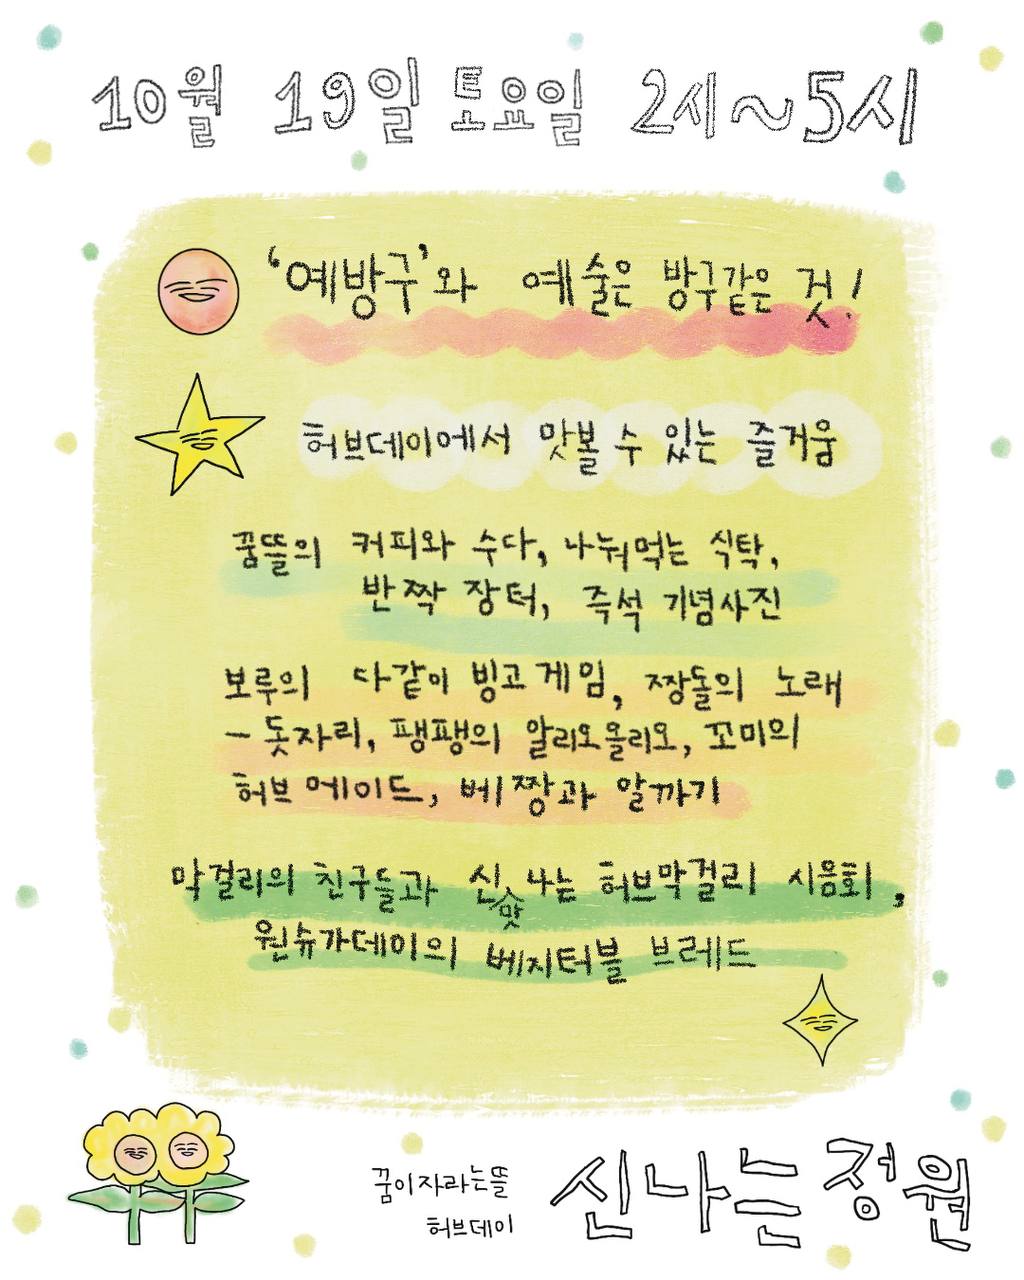 10월 19일 토요일 2시~5시
'예방구'와 예술은 방구같은 것!
허브데이에서 맛볼 수 있는 즐거움
꿈뜰의 커피와 수다, 나눠먹는 식탁,
반짝 장터, 즉석 기념사진
보루의 다같이 빙고 게임, 짱돌의 노래
- 돗자리, 팽팽의 알리오올리오, 꼬미의
허브 메이드, 베짱과 알까기
막걸리의 친구들과 신나는 허브막걸리 시음회,
맛
원슈가데이의 베지터블 브레드
꿈이자라는뜰
허브데이
신나는정원